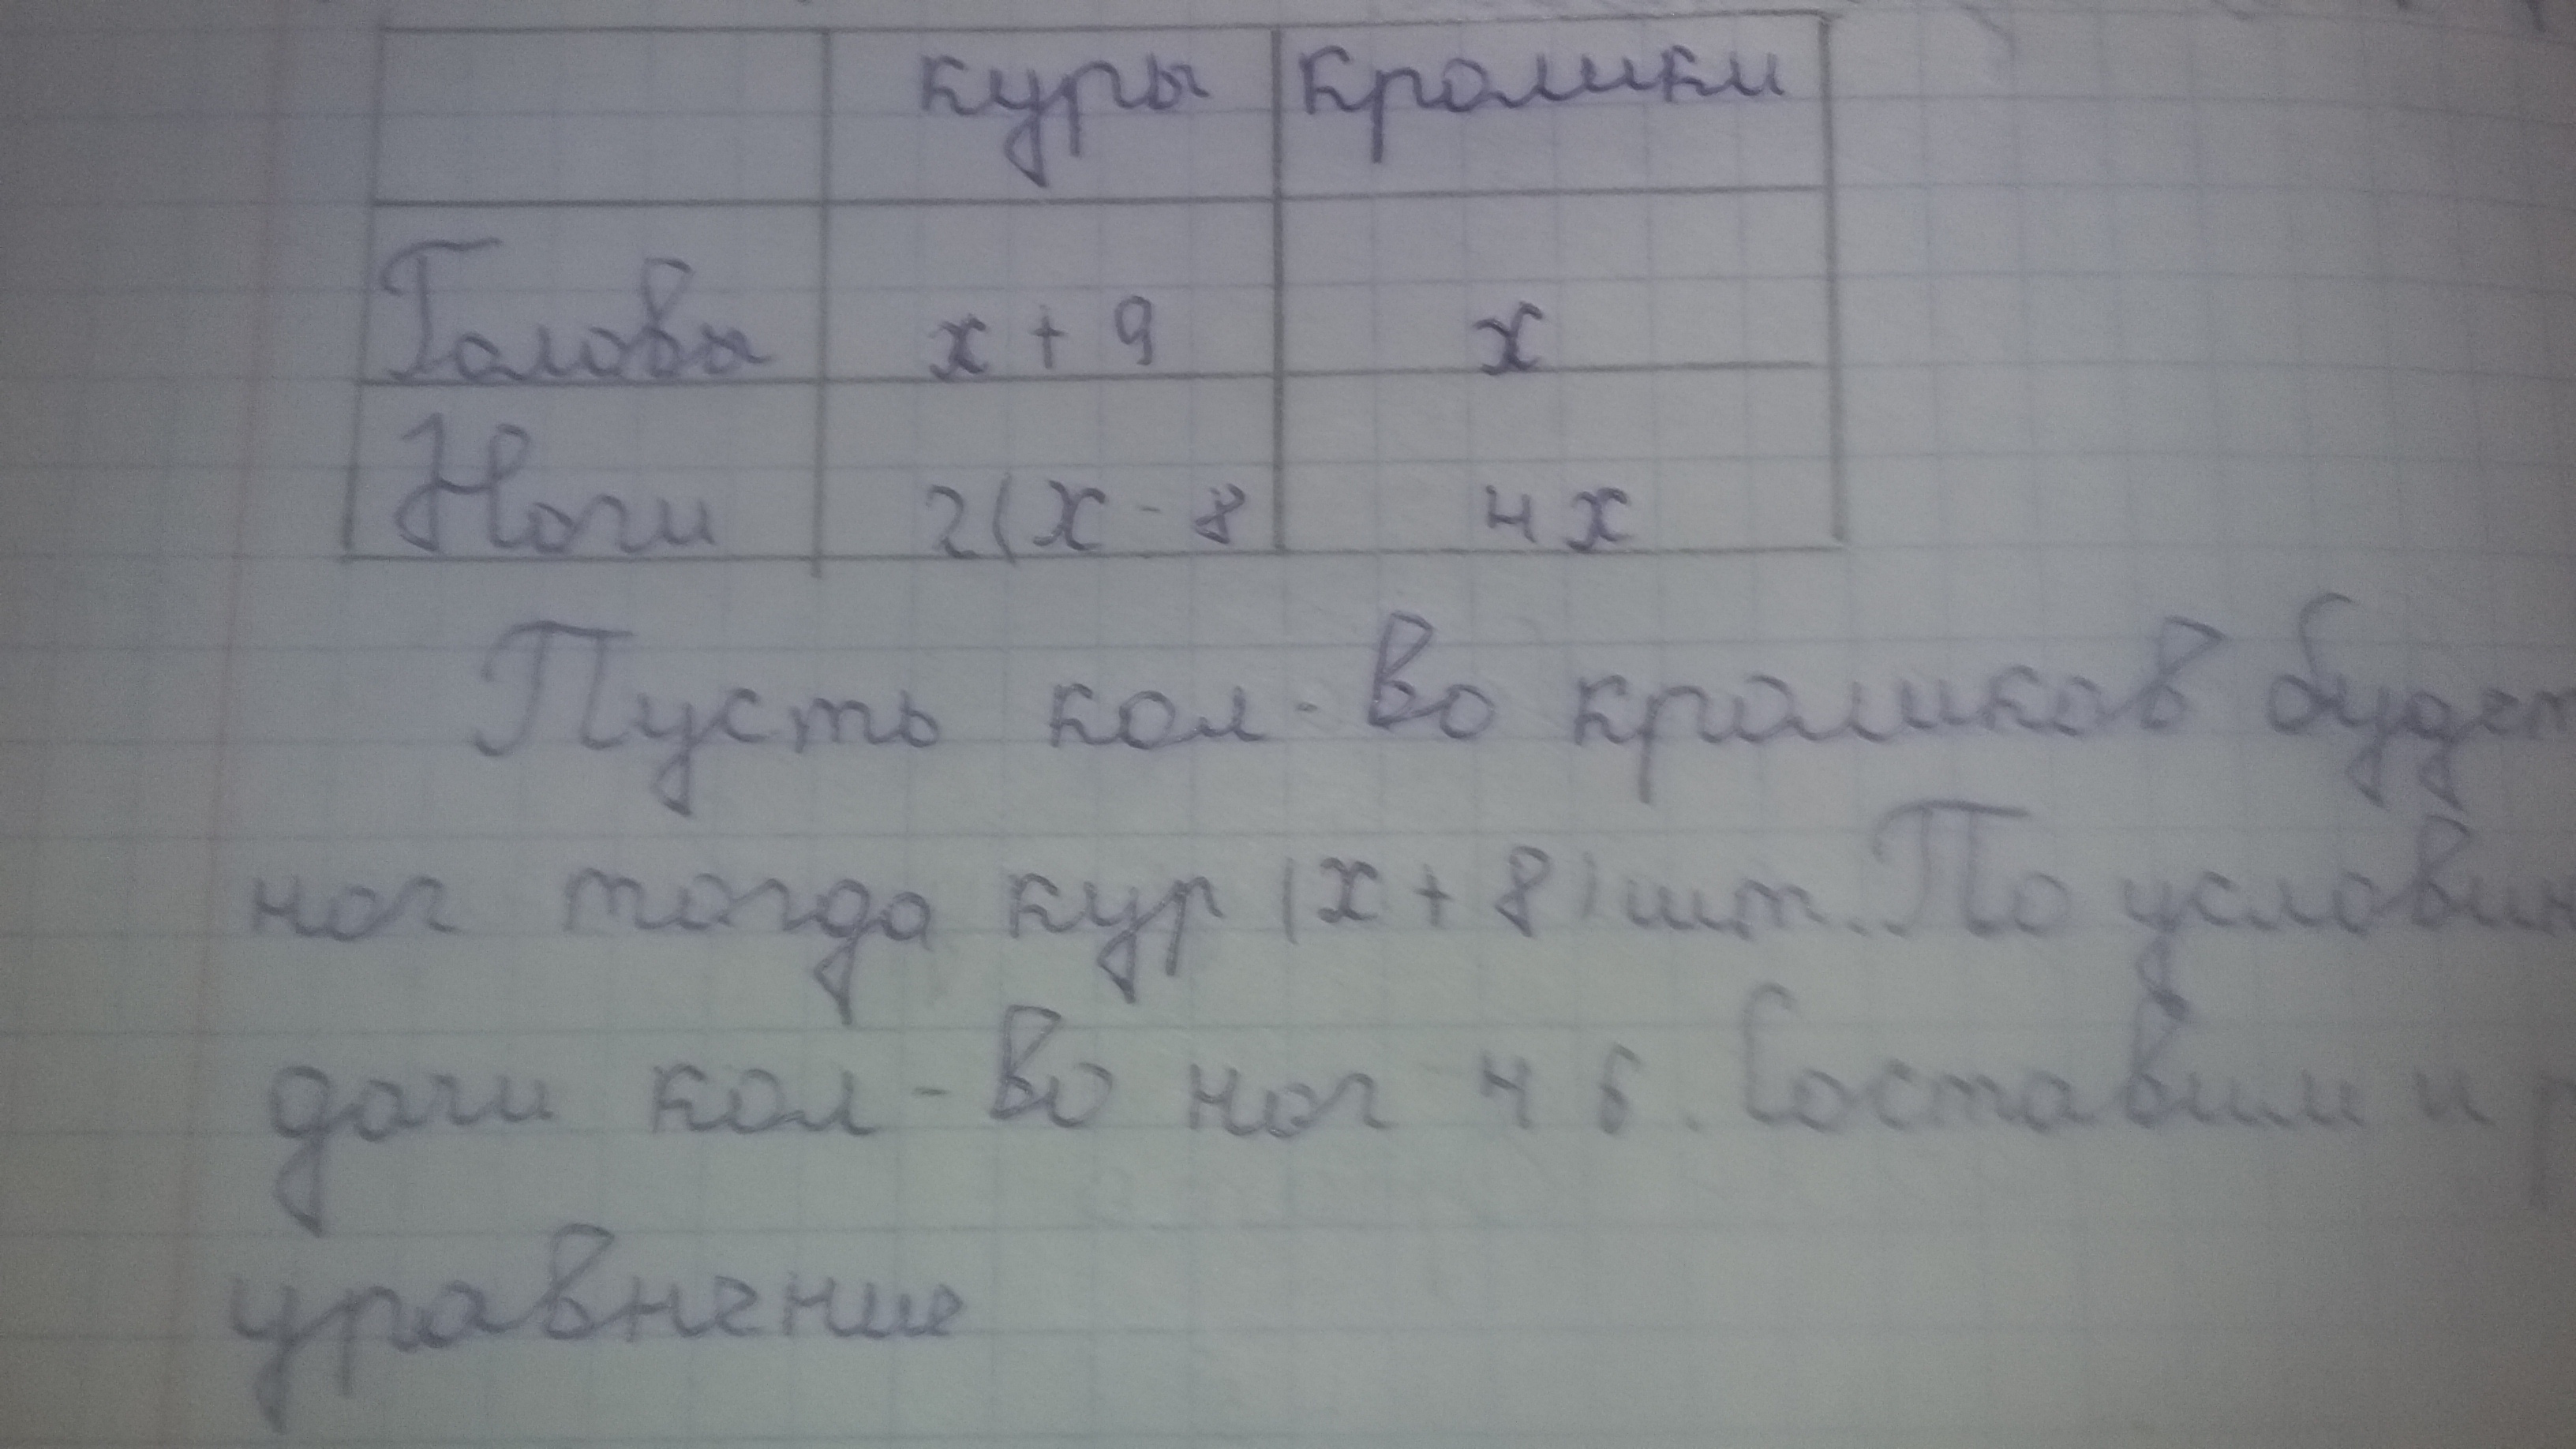 куры кролики
Головы x + 9 x
Ноги 2(x - 8 4x
Пусть кол-во кроликов будет
ног тогда кур (x + 8) шт. По услови
дачи кол-во ног 46. Составим и
уравнение